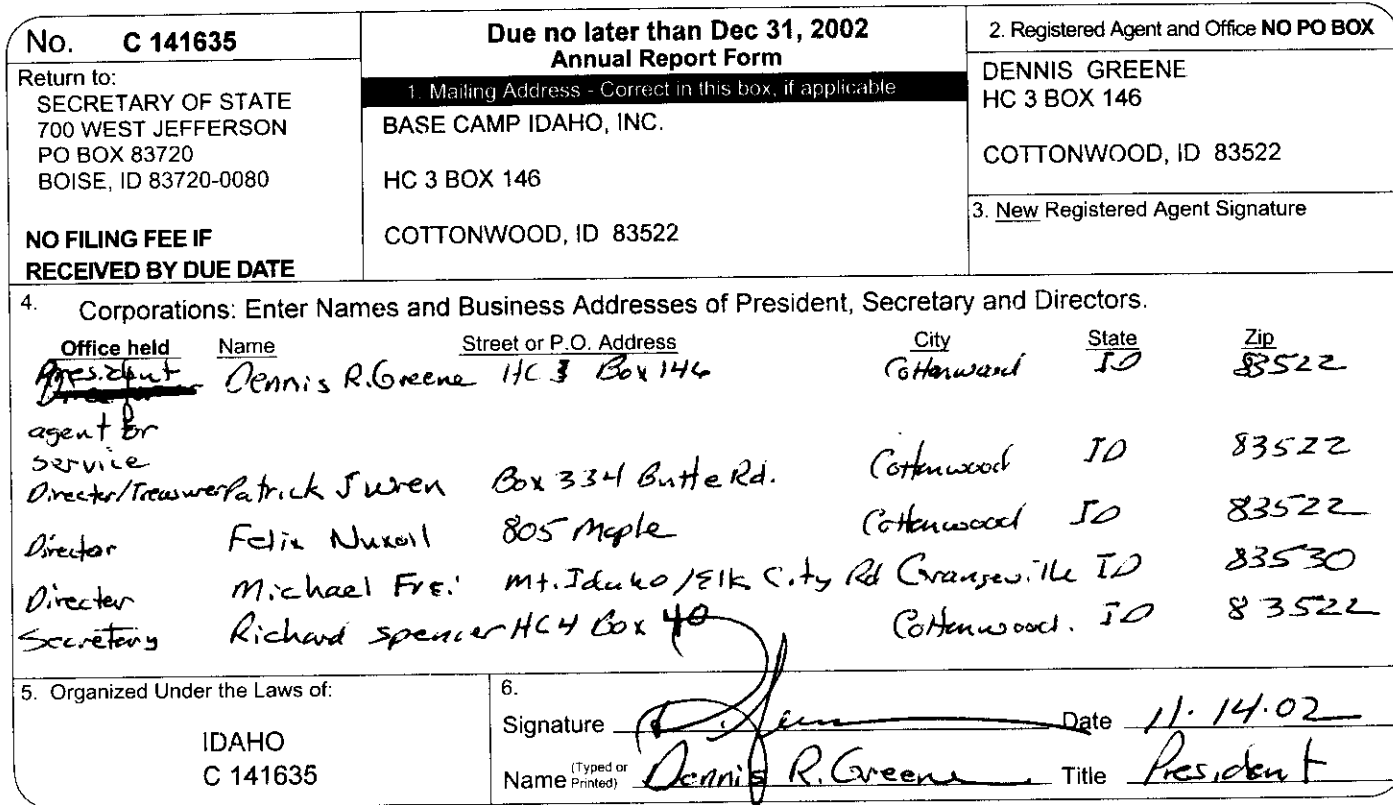 No. C 141635
Return to:
SECRETARY OF STATE
700 WEST JEFFERSON
PO BOX 83720
BOISE, ID 83720-0080
NO FILING FEE IF
RECEIVED BY DUE DATE
Due no later than Dec 31, 2002
Annual Report Form
1. Mailing Address - Correct in this box, if applicable
BASE CAMP IDAHO, INC.
HC 3 BOX 146
COTTONWOOD, ID 83522
2. Registered Agent and Office NO PO BOX
DENNIS GREENE
HC 3 BOX 146
COTTONWOOD, ID 83522
3. New Registered Agent Signature
4. Corporations: Enter Names and Business Addresses of President, Secretary and Directors.
Office held Name Street or P.O. Address City State Zip
President Dennis R. Greene HC 3 Box 146 Cottonwood ID 83522
agent for
service
Director/Treasurer Patrick J Wren Box 334 Butte Rd. Cottonwood ID 83522
Director Felix Nuxoll 805 Maple Cottonwood ID 83522
Director Michael Frei Mt. Idaho/Elk City Rd Grangeville ID 83530
Secretary Richard Spencer HC4 Box 40 Cottonwood. ID 83522
5. Organized Under the Laws of:
IDAHO
C 141635
6.
Signature Date 11.14.02
Name (Typed or Printed) Dennis R. Greene Title President